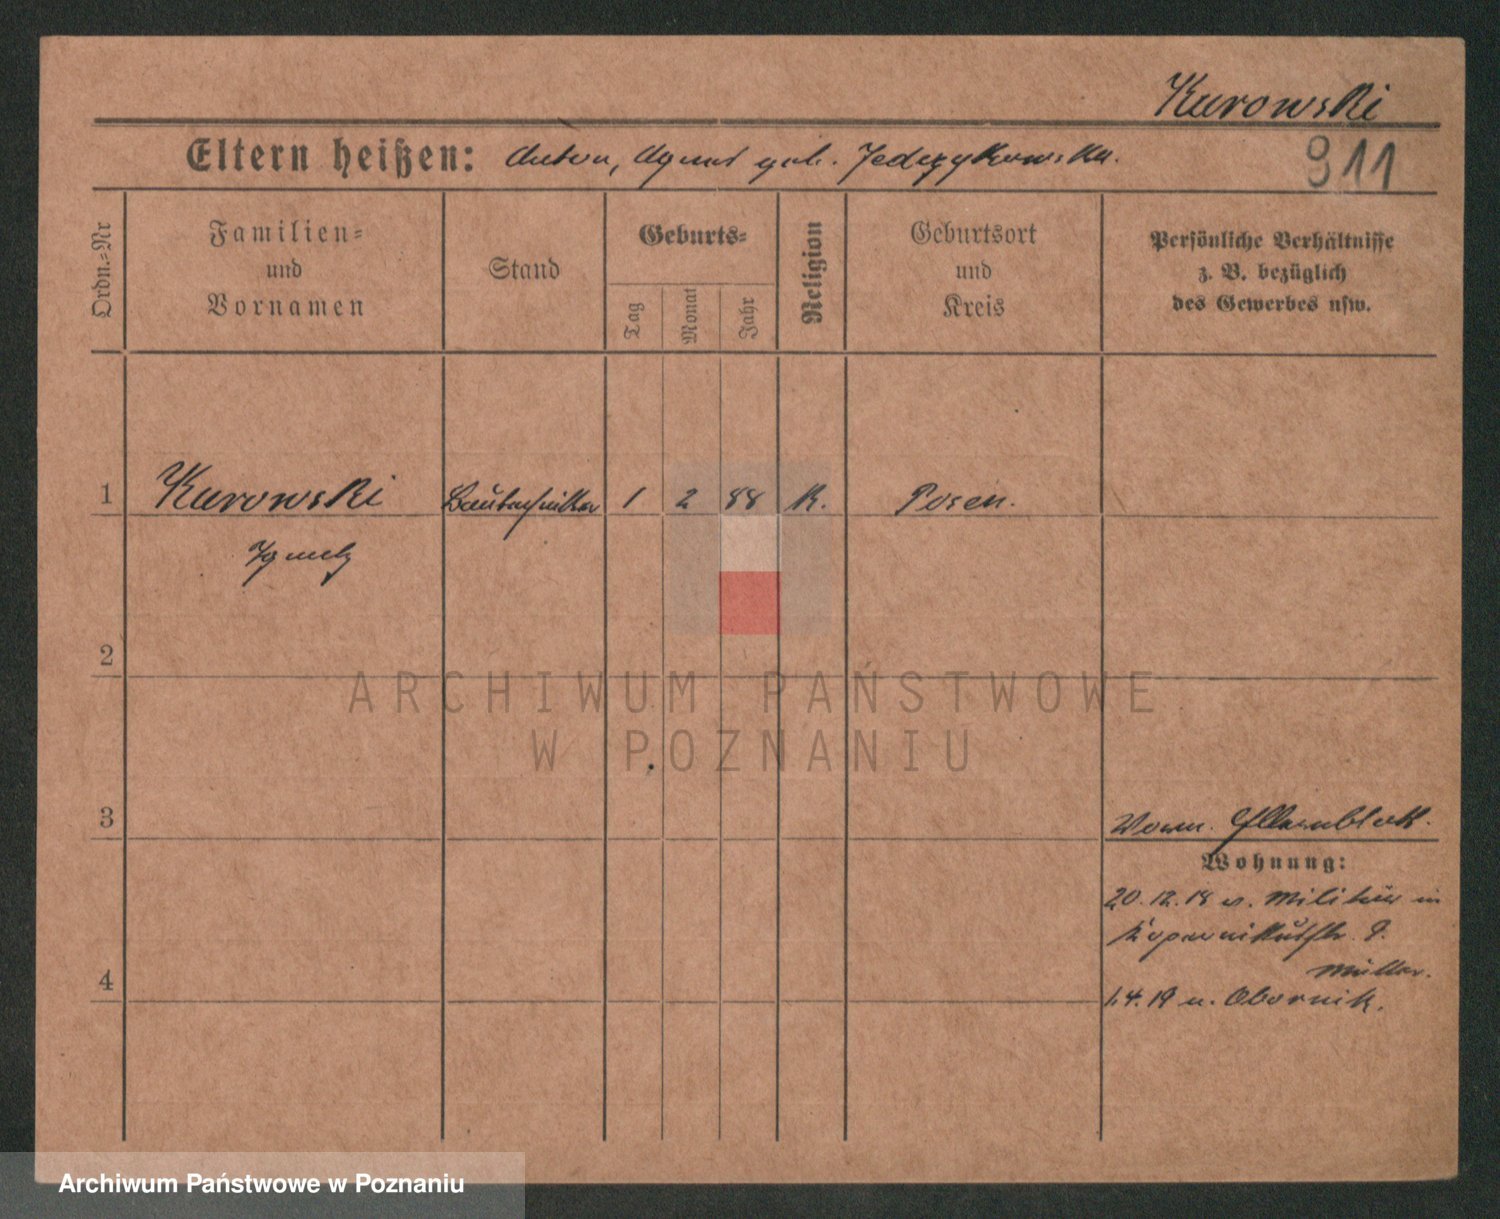 Kurowski
Eltern heißen: Anton, Agnes geb. Jedrzykowska.
911
Ordn.-Nr
Familien-
und
Vornamen
Stand
Geburts-
Tag
Monat
Jahr
Religion
Geburtsort
und
Kreis
Persönliche Verhältnisse
z. B. bezüglich
des Gewerbes usw.
1 Kurowski Bautechniker 1 2 88 K. Posen.
Ignatz
2
ARCHIWUM PAŃSTWOWE
W POZNANIU
3
Elternblatt.
Wohnung:
20.12.18 v. Militär in
Kopernikusstr. 9.
Müller.
4
1.4.19 n. Obornik.
Archiwum Państwowe w Poznaniu